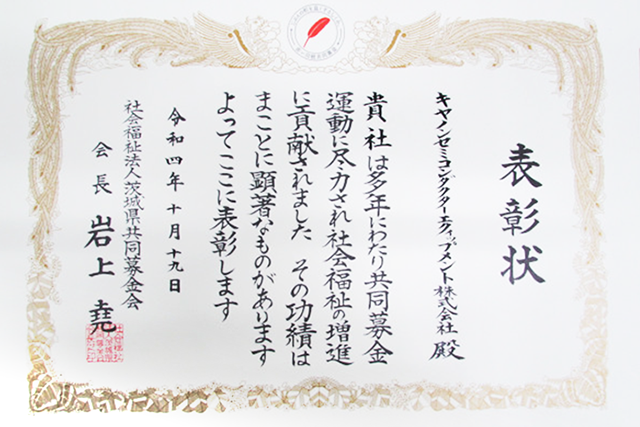 表彰状
キヤノンセミコンダクターエクィップメント株式会社 殿
貴社は多年にわたり共同募金
運動に尽力され社会福祉の増進
に貢献されました その功績は
まことに顕著なものがあります
よってここに表彰します
令和四年十月十九日
社会福祉法人茨城県共同募金会
会長 岩上 堯